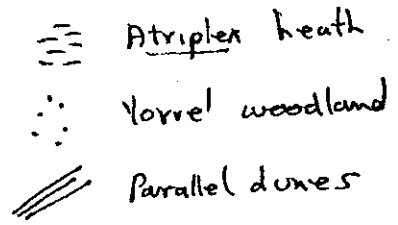 Atriplex heath
Yorrel woodland
Parallel dunes